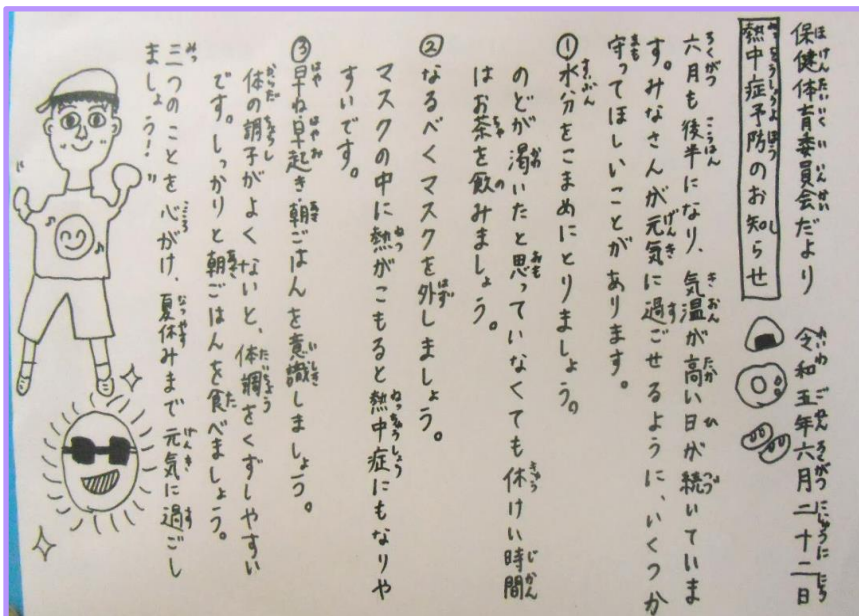 保健体育委員会だより 令和五年六月二十二日
熱中症予防のお知らせ
六月も後半になり、気温が高い日が続いていま
す。みなさんが元気に過ごせるように、いくつか
守ってほしいことがあります。
①水分をこまめにとりましょう。
のどが渇いたと思っていなくても休けい時間
はお茶を飲みましょう。
②なるべくマスクを外しましょう。
マスクの中に熱がこもると熱中症にもなりや
すいです。
③早ね・早起き・朝ごはんを意識しましょう。
体の調子がよくないと、体調をくずしやすい
です。しっかりと朝ごはんを食べましょう。
三つのことを心がけ、夏休みまで元気に過ごし
ましょう!